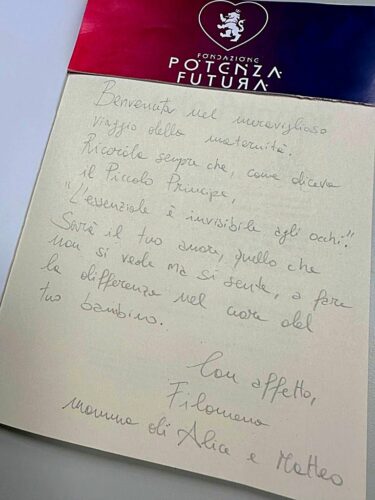 FONDAZIONE
POTENZA
FUTURA
Benvenuta nel meraviglioso
viaggio della maternità.
Ricorda sempre che, come diceva
il Piccolo Principe,
"L'essenziale è invisibile agli occhi".
Sarà il tuo amore, quello che
non si vede ma si sente, a fare
la differenza nel cuore del
tuo bambino.
Con affetto,
Filomena
mamma di Alice e Matteo